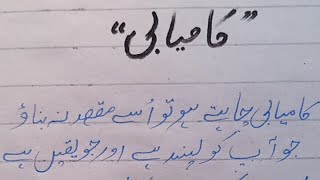 "کامیابی"
کامیابی چاہتے ہو تو اُسے مقصد نہ بناؤ
جو آپ کو پسند ہے اور جو یقین ہے